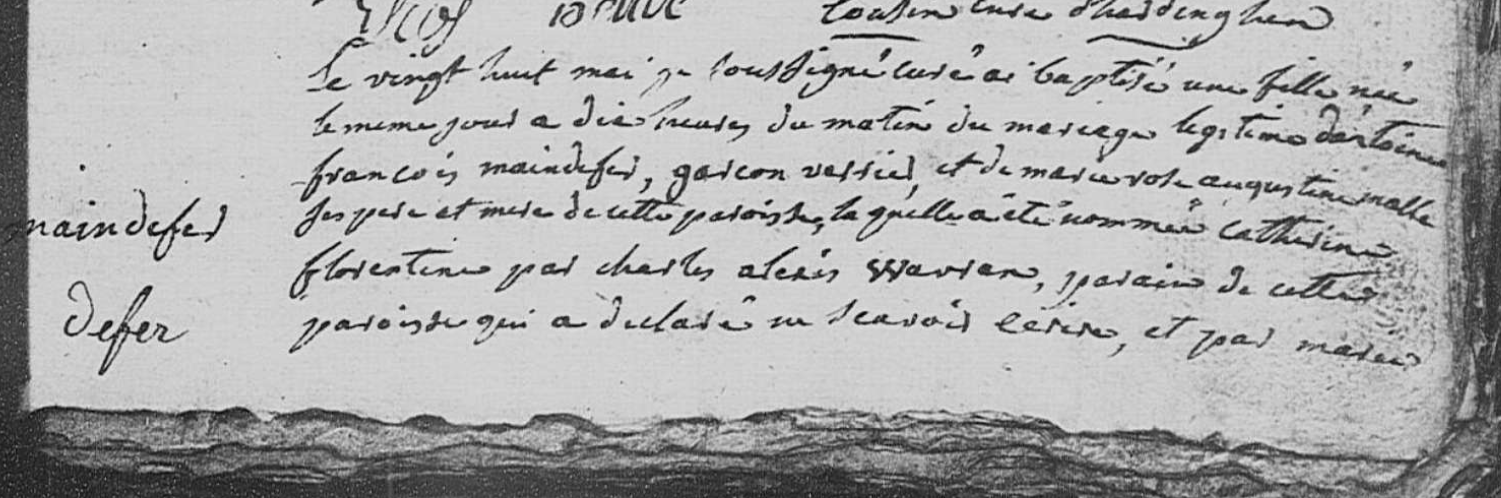 cousin curé d'hardinghen
Le vingt huit mai je soussigné curé ai baptisé une fille née
le meme jour a dix heures du matin du mariage legitime d'antoine
françois maindefer, garçon verrier, et de marie rose augustine malle
ses pere et mere de cette paroisse, laquelle a été nommée catherine
maindefer
florentine par charles alexis wavran, parain de cette
defer
paroisse qui a declaré ne scavoir ecrire, et par marie